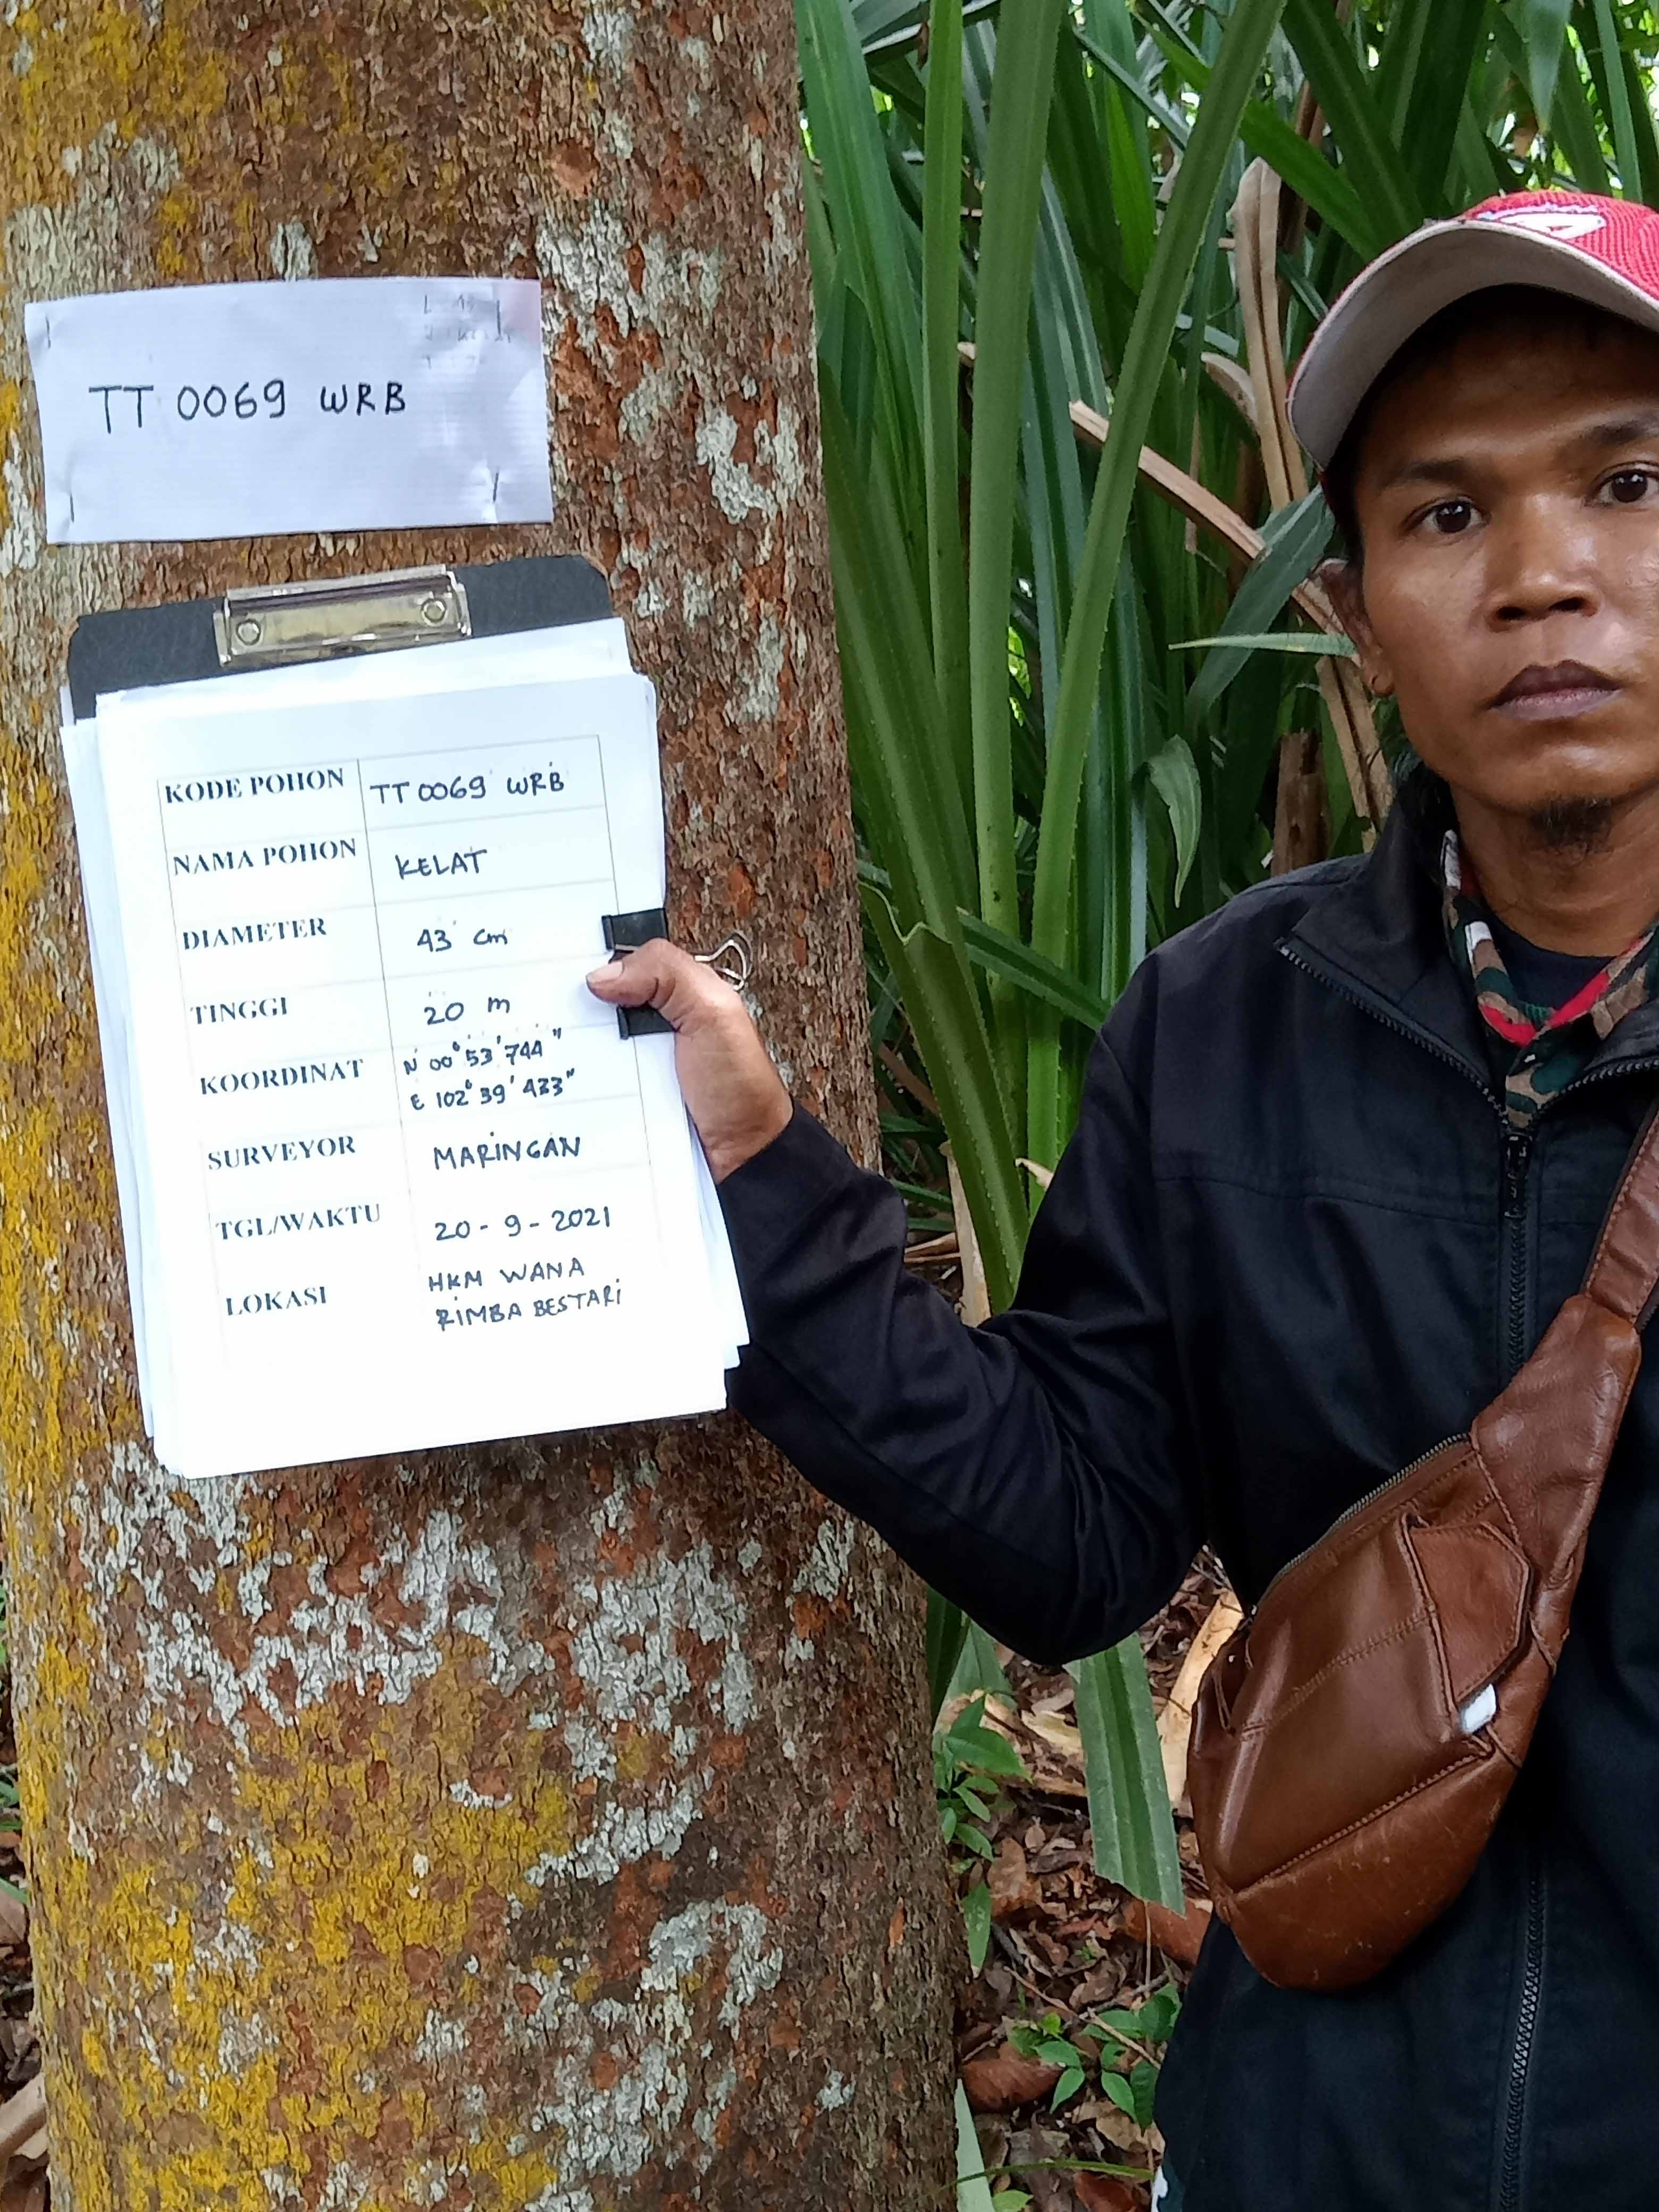 TT 0069 WRB
KODE POHON TT 0069 WRB
NAMA POHON KELAT
DIAMETER 43 cm
TINGGI 20 m
KOORDINAT N 00° 53' 744"
E 102° 39' 433"
SURVEYOR MARINGAN
TGL/WAKTU 20 - 9 - 2021
LOKASI HKM WANA
RIMBA BESTARI